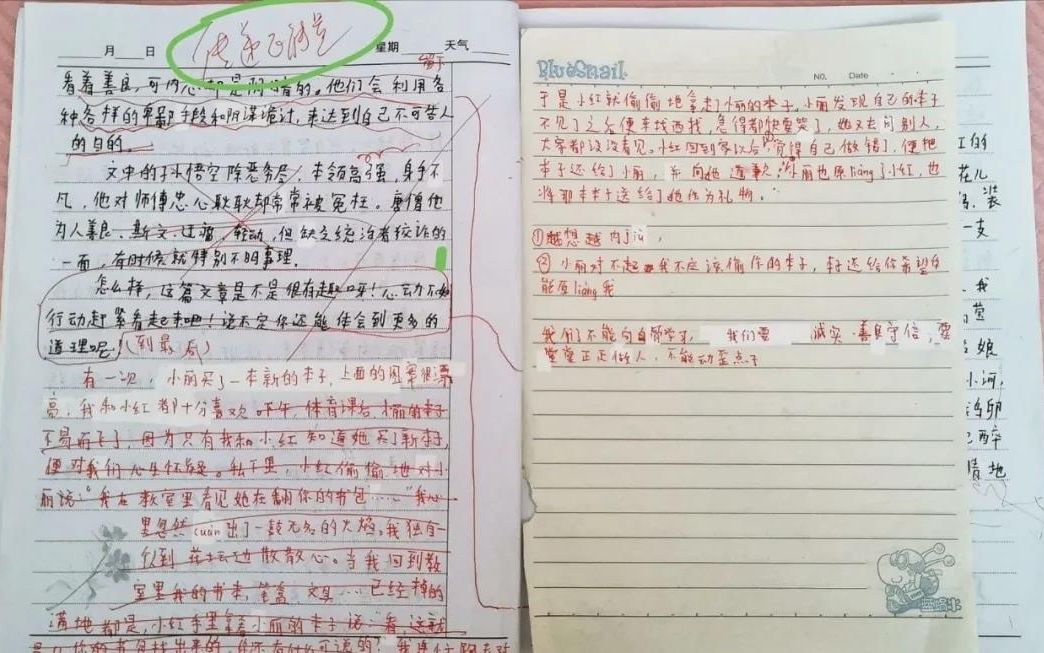 传递正能量
月 日 星期 天气
看着善良,可内心却是阴暗的。他们会利用各
种各样的卑鄙手段和阴谋诡计,来达到自己不可告人
的目的。
文中的孙悟空除恶务尽,本领高强,身手不
凡,他对师傅忠心耿耿却常常被冤枉。唐僧他
为人善良、斯文、
但缺乏统治者狡诈的
一面,有时候就特别不明事理。
怎么样,这篇文章是不是很有趣呀!心动不如
行动赶紧看起来吧!说不定你还能体会到更多的
道理呢!(到最后)
有一次,小丽买了一本新的本子,上面的图案很漂
亮,我和小红都十分喜欢。下午,体育课后,小丽的本子
不易而飞了,因为只有我和小红知道她买了新本子,
便对我们心生怀疑。私下里,小红偷偷地对小
丽说:“我在教室里看见她在翻你的书包……”我心
里忽然cuàn出了一鼓无名的火焰。我独自
伩到花坛边散散心。当我回到教
室里我的书本,笔盒,文具……已经掉的
满地都是,小红手里拿着小丽的本子说:看,这就
是从你的书包找出来的,你还有什么可说的?
BlueSnail
NO. Date
于是小红就偷偷地拿走了小丽的本子,小丽发现自己的本子
不见了之后便东找西找,急得都快要哭了,她又去问别人,
大家都说没看见。小红回到家以后觉得自己做错了,便把
本子还给了小丽,并向她道歉,小丽也原liàng了小红,也
将那本本子送给了她作为礼物。
①越想越内jiù,
②小丽对不起,我不应该偷你的本子,本子还给你希望你
能原liàng我
我们不能向自带学习,我们要诚实、善良守信,要
堂堂正正做人,不能动歪点子
蓝蜗牛
红的
花儿
装
一支
我
萤
娘
小河,
卵
醉
晴地